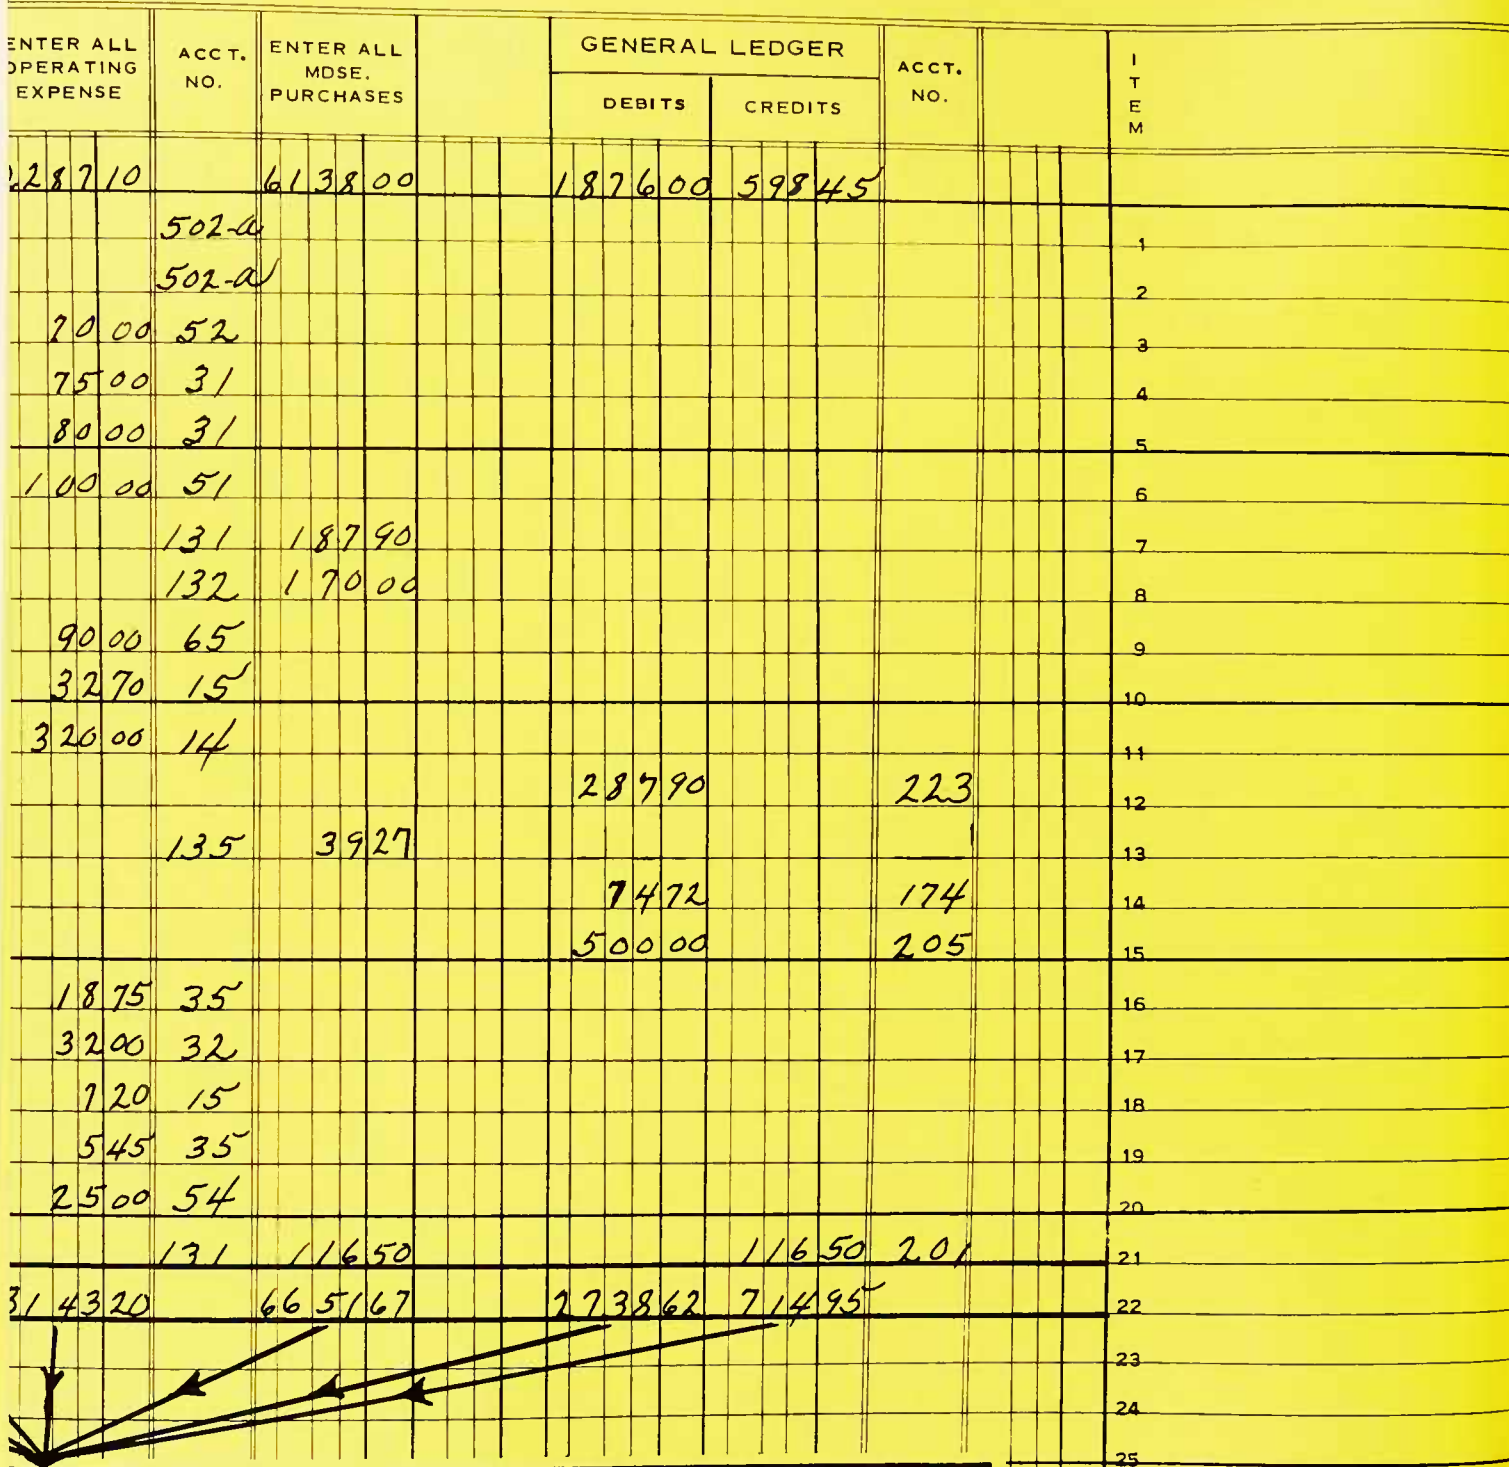 ENTER ALL OPERATING EXPENSE
ACCT. NO.
ENTER ALL MDSE. PURCHASES
GENERAL LEDGER
DEBITS
CREDITS
ACCT. NO.
ITEM
2287 10 6138 00 1876 00 598 45
502-a 1
502-a 2
70 00 52 3
75 00 31 4
80 00 31 5
100 00 51 6
131 187 90 7
132 170 00 8
90 00 65 9
32 70 15 10
320 00 14 11
287 90 223 12
135 39 27 13
74 72 174 14
500 00 205 15
18 75 35 16
32 00 32 17
7 20 15 18
5 45 35 19
25 00 54 20
131 116 50 116 50 201 21
3143 20 6651 67 2738 62 714 95 22
23
24
25